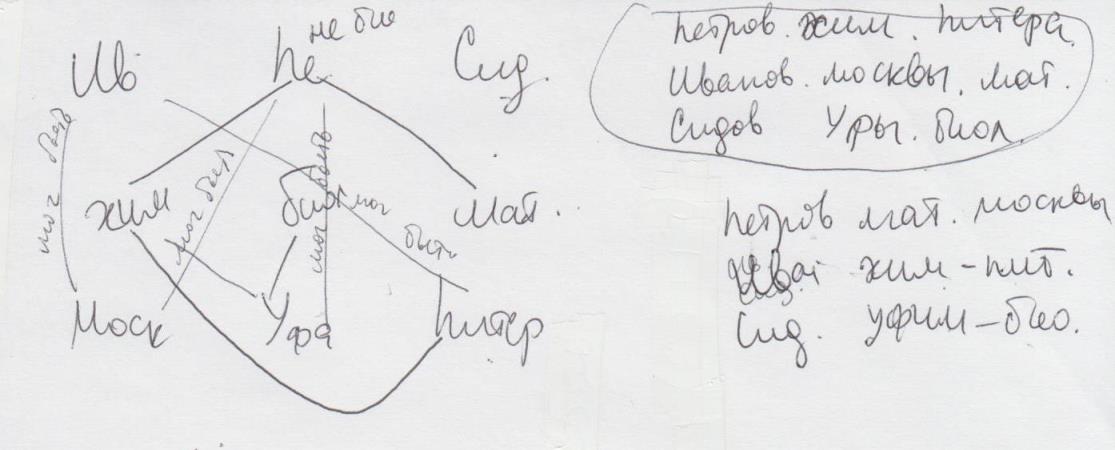 Ив Пе не био Сид.
мог быть мог был мог быть мог быть
хим биол мат.
Моск Уфа Питер
Петров. хим. Питера.
Иванов. москвы. мат.
Сидов Уфы. биол.
Петров мат. москвы
хим - пит.
Сид. уфим - био.